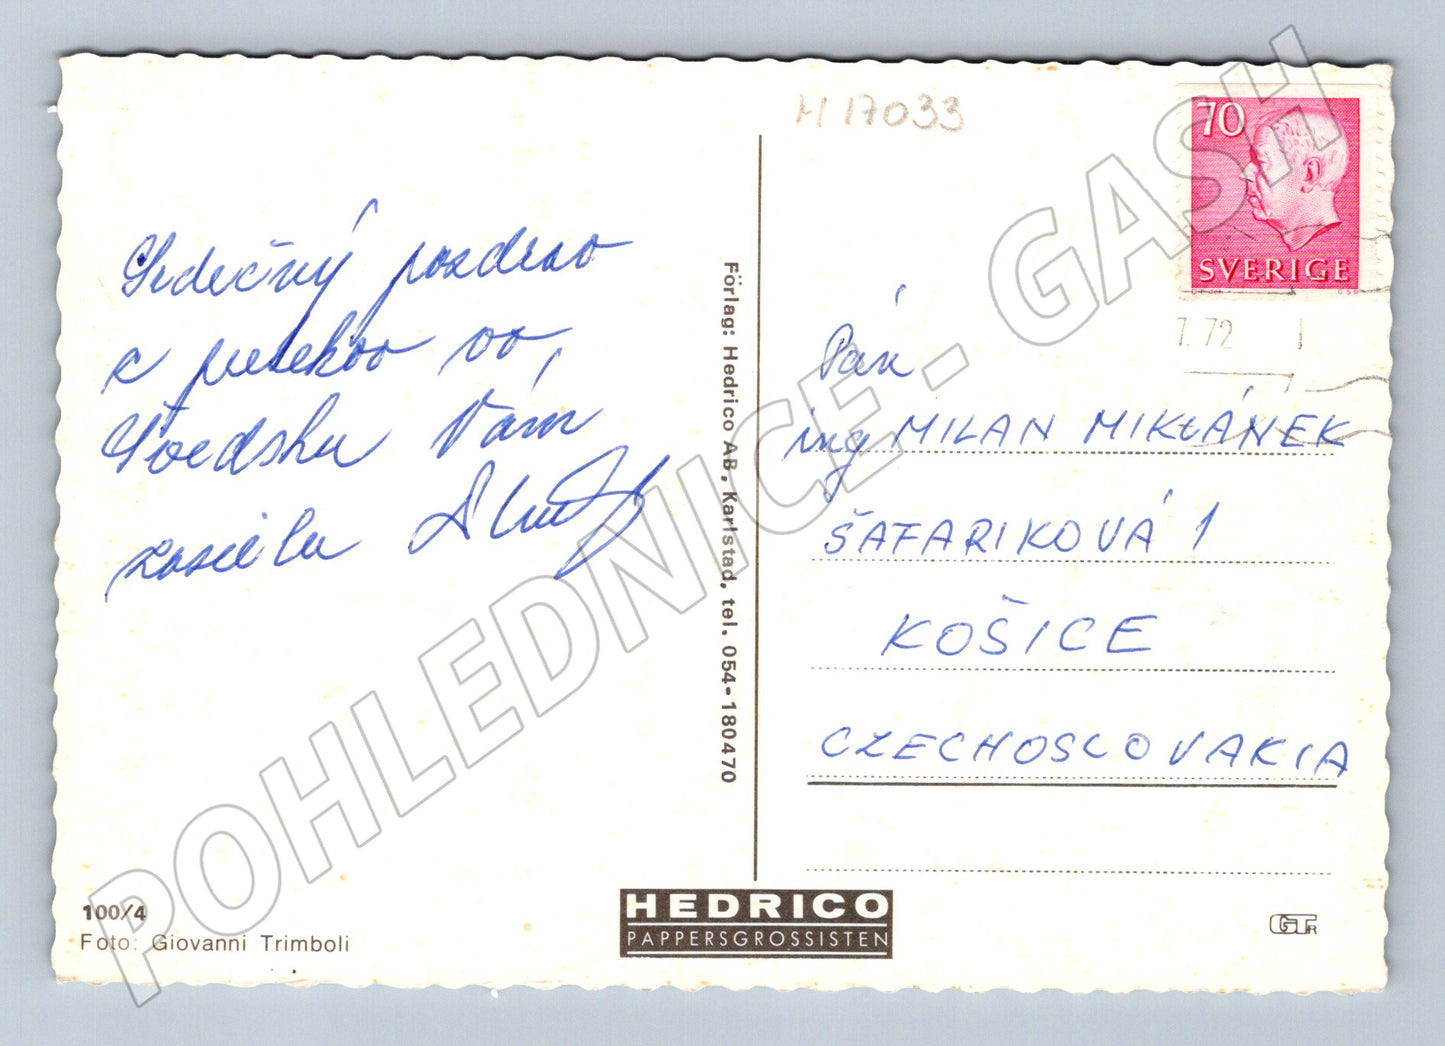 H 17033
70
SVERIGE
7.72
Srdečný pozdrav
z
Vám
zasiela
Förlag: Hedrico AB, Karlstad, tel. 054-180470
Pán
ing MILAN MIKLÁNEK
ŠAFARIKOVÁ 1
KOŠICE
CZECHOSLOVAKIA
100/4
Foto: Giovanni Trimboli
HEDRICO
PAPPERSGROSSISTEN
POHLEDNICE - GASH